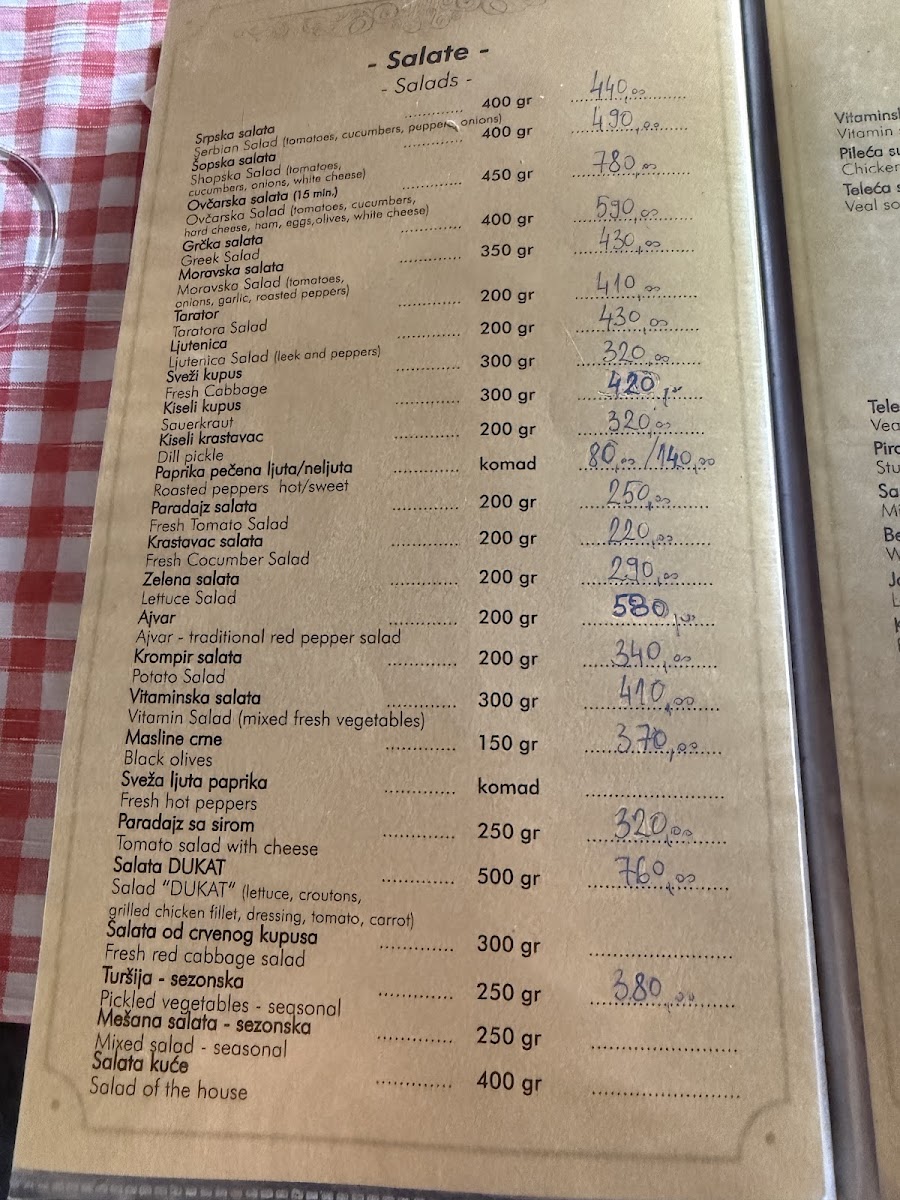 - Salate -
- Salads -
Srpska salata ............ 400 gr 440,00
Serbian Salad (tomatoes, cucumbers, peppers, onions)
Šopska salata ............ 400 gr 490,00
Shopska Salad (tomatoes,
cucumbers, onions, white cheese)
Ovčarska salata (15 min.) ............ 450 gr 780,00
Ovčarska Salad (tomatoes, cucumbers,
hard cheese, ham, eggs,olives, white cheese)
Grčka salata ............ 400 gr 590,00
Greek Salad
Moravska salata ............ 350 gr 430,00
Moravska Salad (tomatoes,
onions, garlic, roasted peppers)
Tarator ............ 200 gr 410,00
Taratora Salad
Ljutenica ............ 200 gr 430,00
Ljutenica Salad (leek and peppers)
Sveži kupus ............ 300 gr 320,00
Fresh Cabbage
Kiseli kupus ............ 300 gr 420,00
Sauerkraut
Kiseli krastavac ............ 200 gr 320,00
Dill pickle
Paprika pečena ljuta/neljuta ............ komad 80,00/140,00
Roasted peppers hot/sweet
Paradajz salata ............ 200 gr 250,00
Fresh Tomato Salad
Krastavac salata ............ 200 gr 220,00
Fresh Cocumber Salad
Zelena salata ............ 200 gr 290,00
Lettuce Salad
Ajvar ............ 200 gr 580,00
Ajvar - traditional red pepper salad
Krompir salata ............ 200 gr 340,00
Potato Salad
Vitaminska salata ............ 300 gr 410,00
Vitamin Salad (mixed fresh vegetables)
Masline crne ............ 150 gr 370,00
Black olives
Sveža ljuta paprika ............ komad ............
Fresh hot peppers
Paradajz sa sirom ............ 250 gr 320,00
Tomato salad with cheese
Salata DUKAT ............ 500 gr 760,00
Salad "DUKAT" (lettuce, croutons,
grilled chicken fillet, dressing, tomato, carrot)
Salata od crvenog kupusa ............ 300 gr ............
Fresh red cabbage salad
Turšija - sezonska ............ 250 gr 380,00
Pickled vegetables - seasonal
Mešana salata - sezonska ............ 250 gr ............
Mixed salad - seasonal
Salata kuće ............ 400 gr ............
Salad of the house
Vitamin
Pileća
Chicken
Teleća
Veal